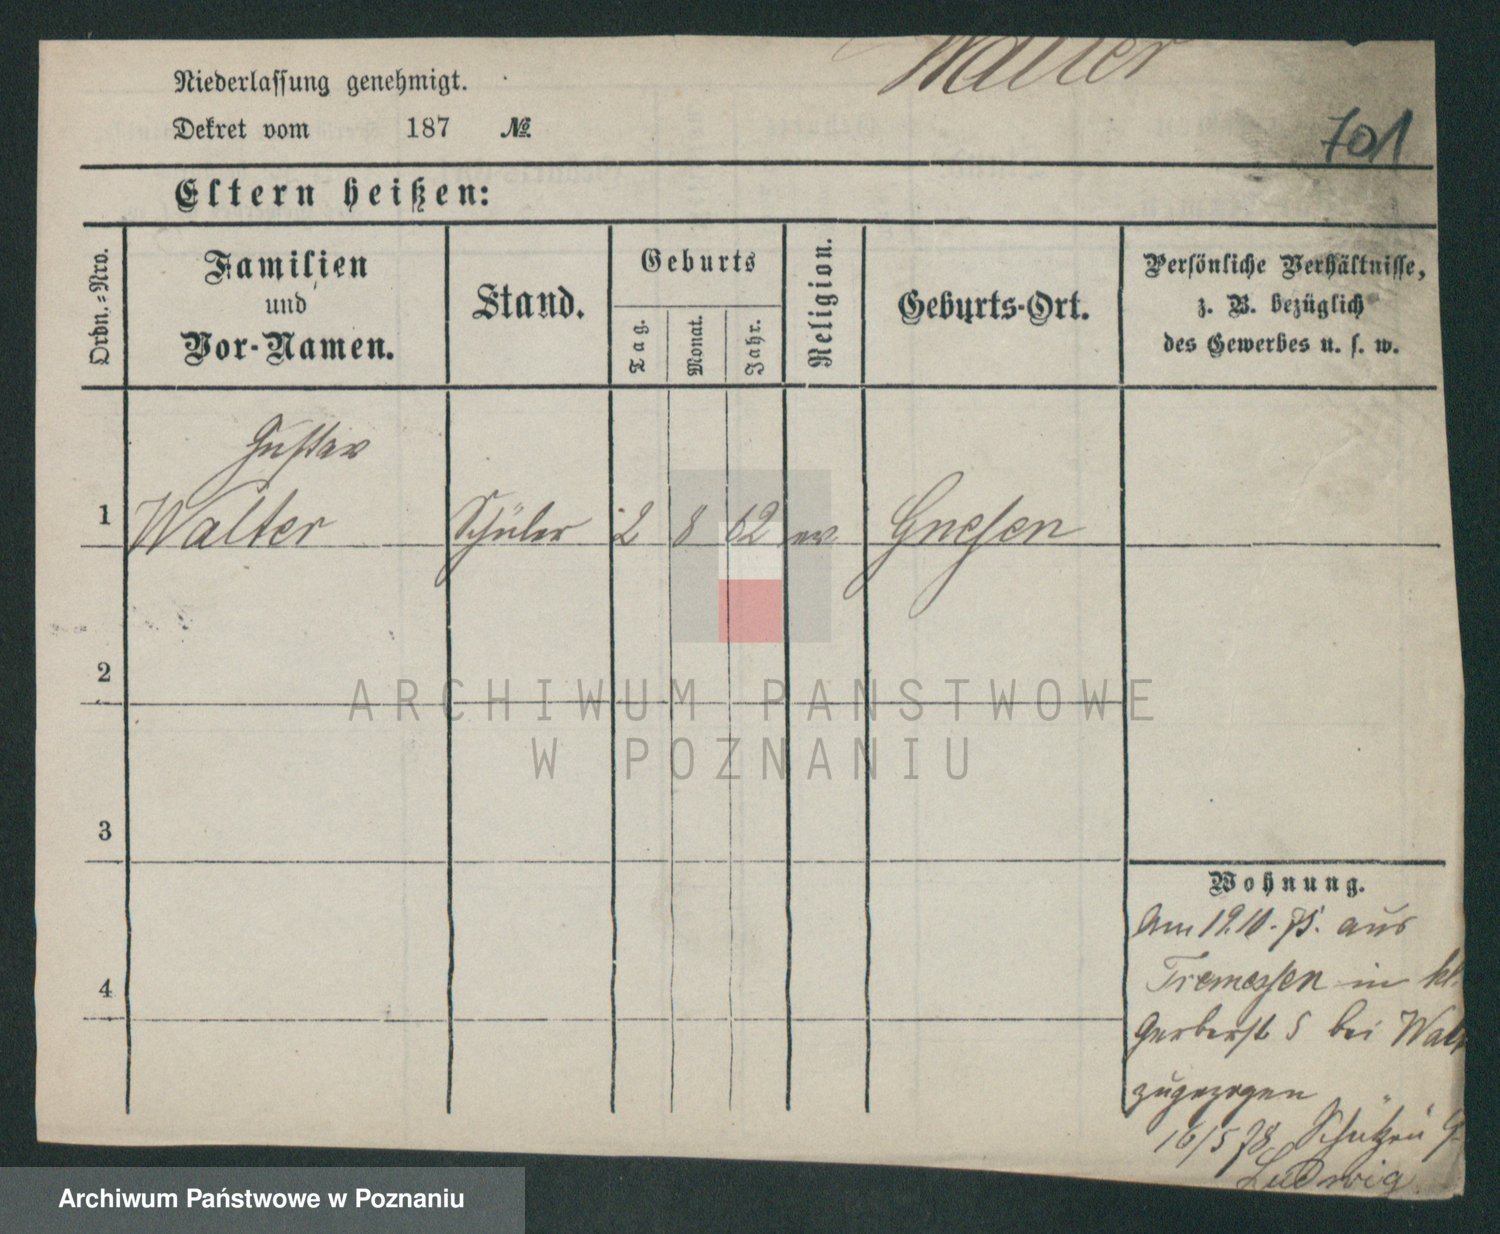 Walter
Niederlassung genehmigt.
Dekret vom 187 №
701
Eltern heißen:
Ordn.-Nro.
Familien
und
Vor-Namen.
Stand.
Geburts
Tag.
Monat.
Jahr.
Religion.
Geburts-Ort.
Persönliche Verhältnisse,
z. B. bezüglich
des Gewerbes u. s. w.
Gustav
1 Walter Schüler 2 8 62 ev Gnesen
2
3
4
Wohnung.
Am 19.10.75. aus
Tremessen in kl.
Gerberst 5 bei Walt
zugezogen
16/5 78 Schützen
Ludwig
ARCHIWUM PAŃSTWOWE
W POZNANIU
Archiwum Państwowe w Poznaniu